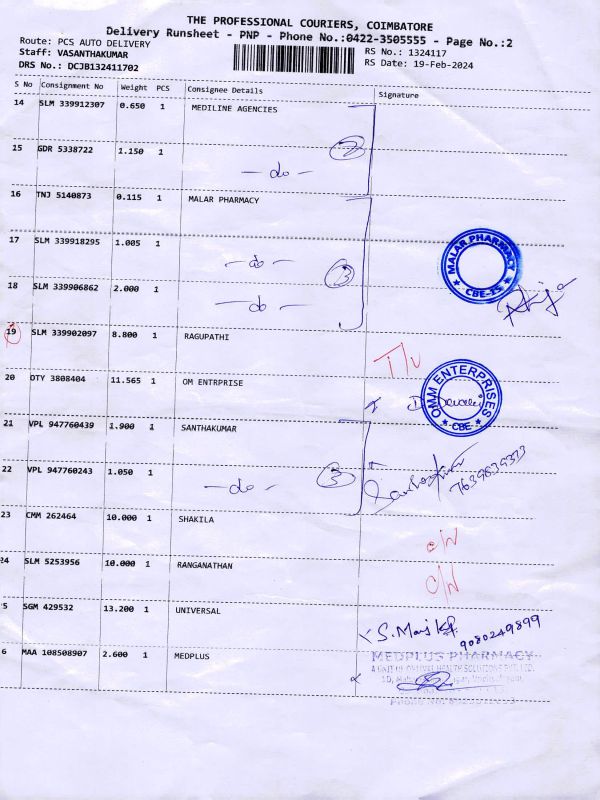 THE PROFESSIONAL COURIERS, COIMBATORE
Delivery Runsheet - PNP - Phone No.:0422-3505555 - Page No.:2
Route: PCS AUTO DELIVERY
Staff: VASANTHAKUMAR
DRS No.: DCJB132411702
RS No.: 1324117
RS Date: 19-Feb-2024
S No Consignment No Weight PCS Consignee Details Signature
14 SLM 339912307 0.650 1 MEDILINE AGENCIES
2
15 GDR 5338722 1.150 1
- do -
16 TNJ 5140873 0.115 1 MALAR PHARMACY
17 SLM 339918295 1.005 1
- do -
3
MALAR PHARMACY
CBE-15
18 SLM 339906862 2.000 1
- do -
19 SLM 339902097 8.800 1 RAGUPATHI
20 OTY 3808404 11.565 1 OM ENTRPRISE
OMM ENTERPRISES
CBE
21 VPL 947760439 1.900 1 SANTHAKUMAR
22 VPL 947760243 1.050 1
- do -
3
7639839323
23 CMM 262464 10.000 1 SHAKILA
C/N
24 SLM 5253956 10.000 1 RANGANATHAN
C/N
5 SGM 429532 13.200 1 UNIVERSAL
9080249899
6 MAA 108508907 2.600 1 MEDPLUS
MEDPLUS PHARMACY